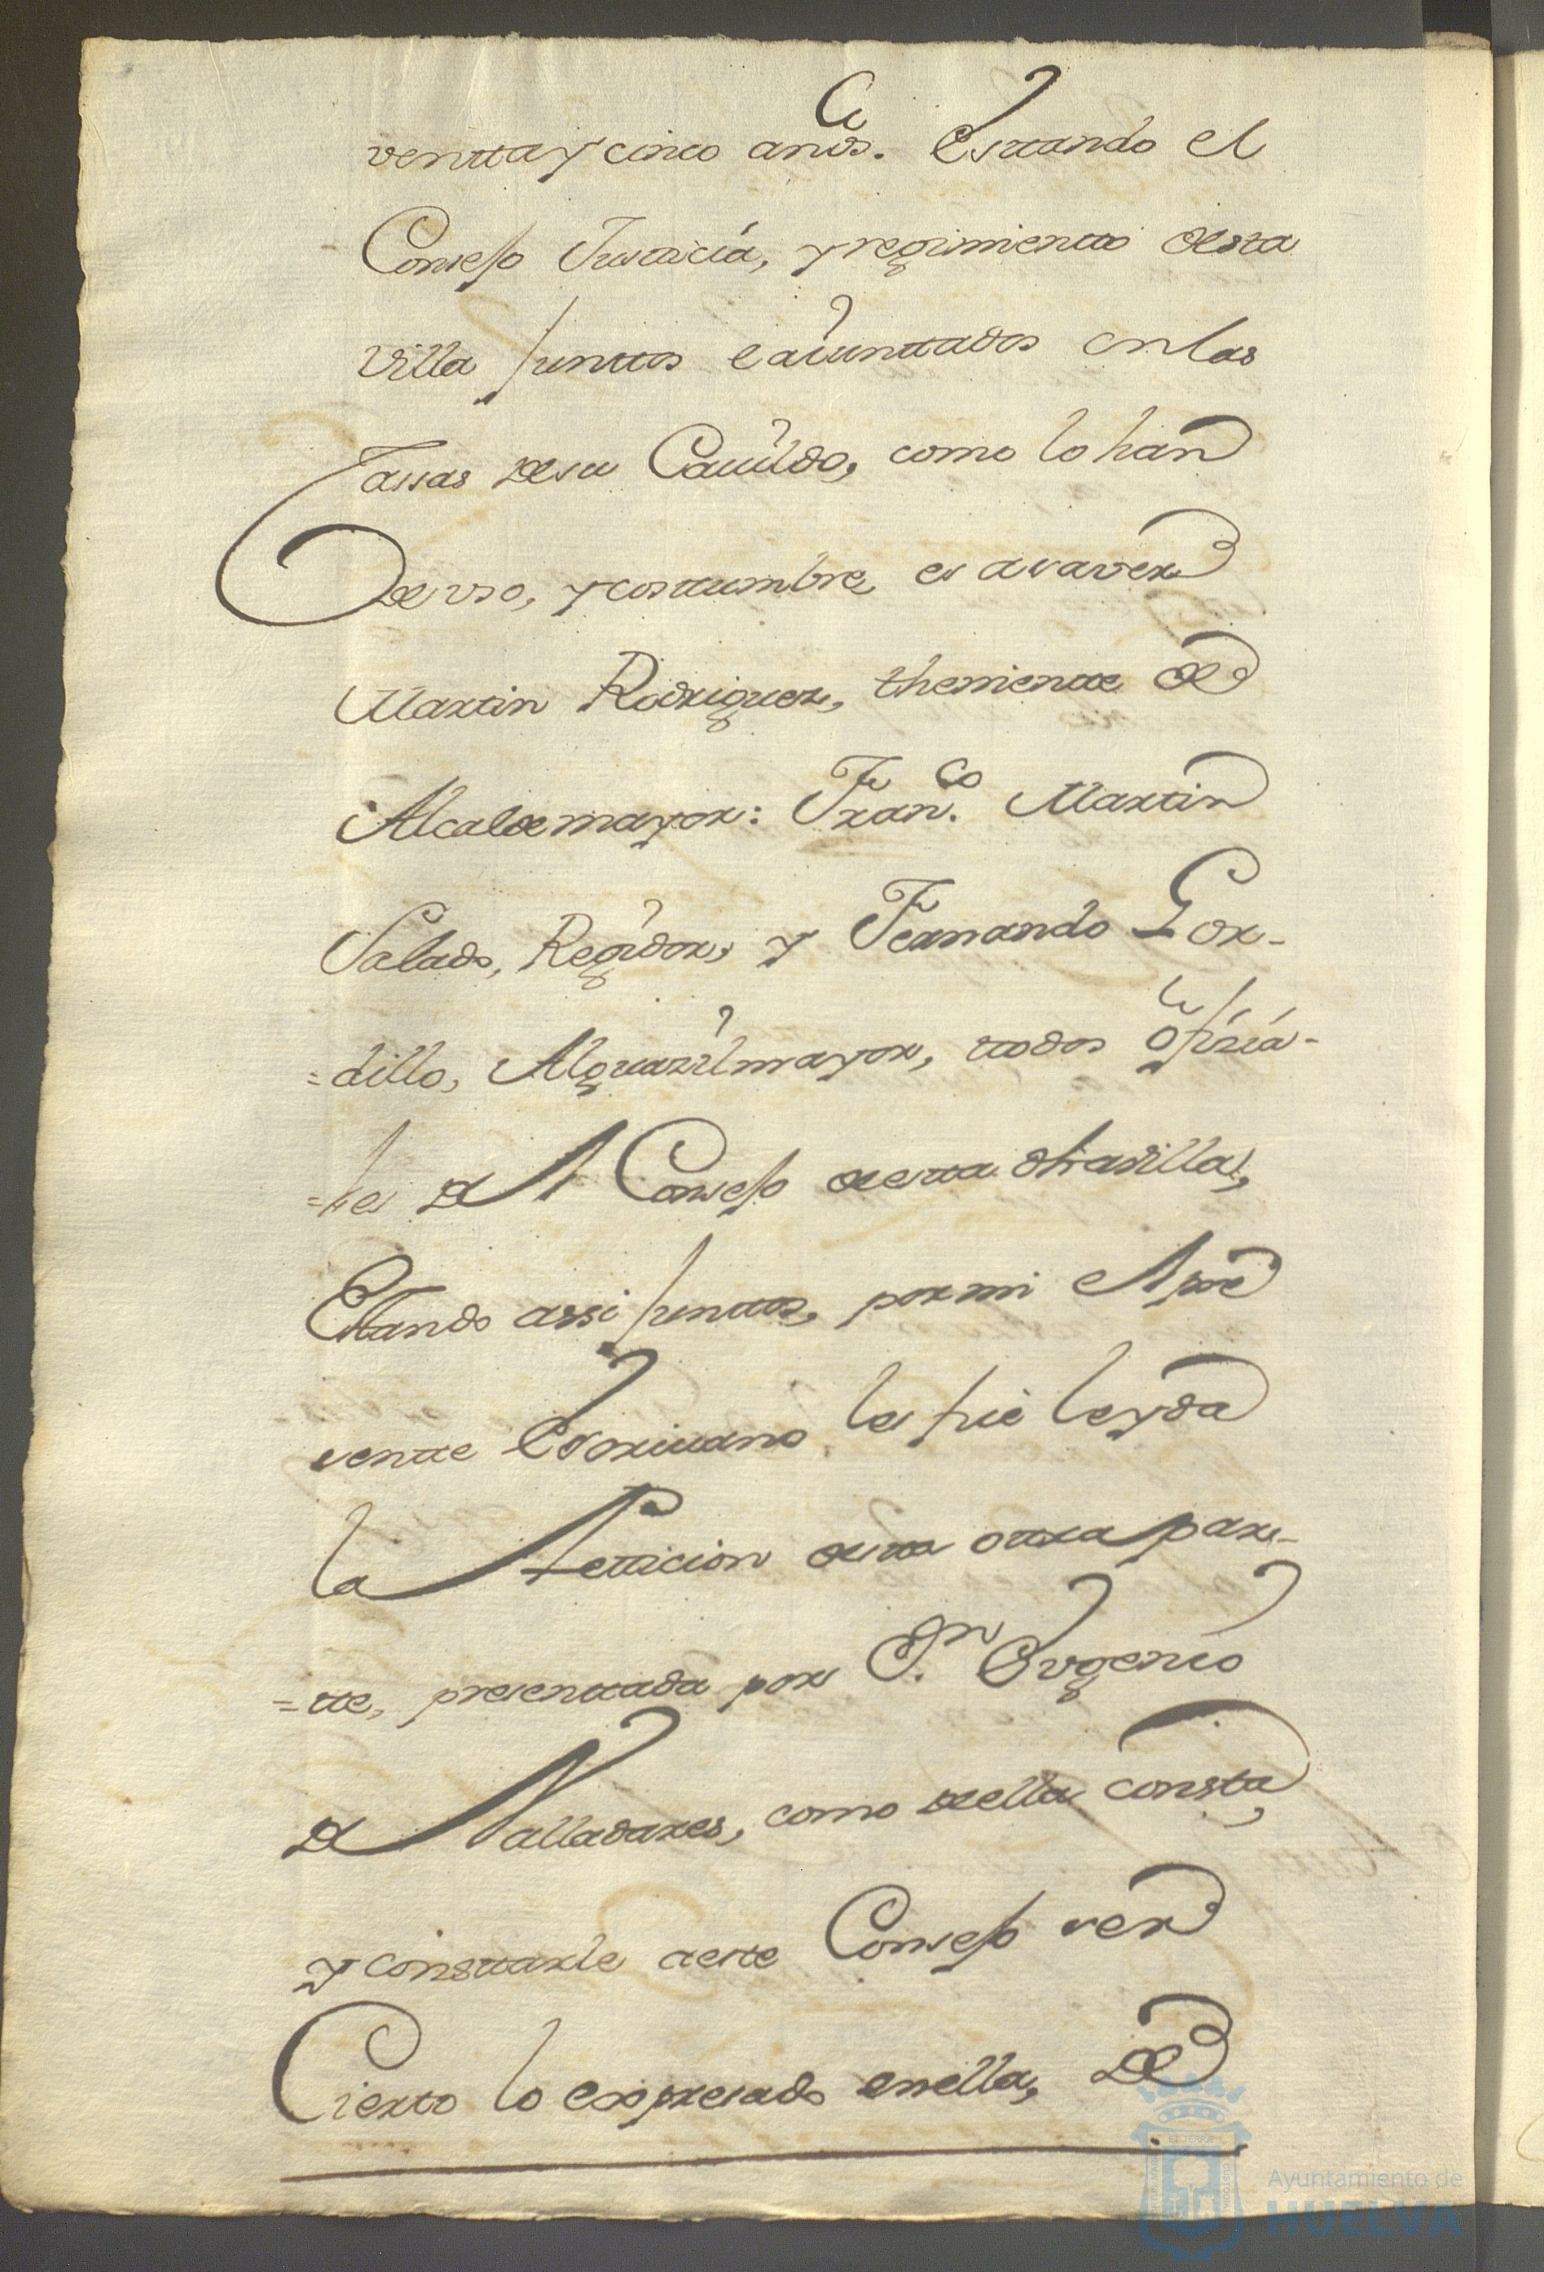 ventta y cinco años. Estando el
Consejo Justicia, y regimiento desta
Villa juntos e aiunttados en las
Cassas de su Cauildo, como lo han
de vso, y costtumbre, es a saver
Martin Rodriguez, theniente de
Alcalde mayor: Fran.co Martin
Salado, Regidor, y Fernando Gor-
=dillo, Alguazil mayor, ttodos ofizia-
=les del Consejo de esta dha villa,
Estando assi junttos, por mi el pre
sentte Escriuano, les fue leyda
la Petticion desta ottra par-
=tte, presenttada por Dn. Eugenio
de Valladares, como della consta,
y consttarle a este Consejo ser
Cierto lo expresado en ella, de
Ayuntamiento de
HUELVA